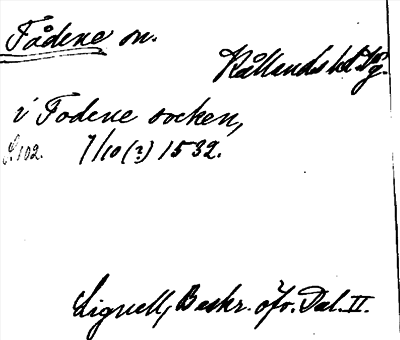 Fådene on.
Kållands hd. Vg.
i Fodene socken,
S. 102. 7/10 (?) 1532.
Lignell, Beskr. öfv. Dal. II.